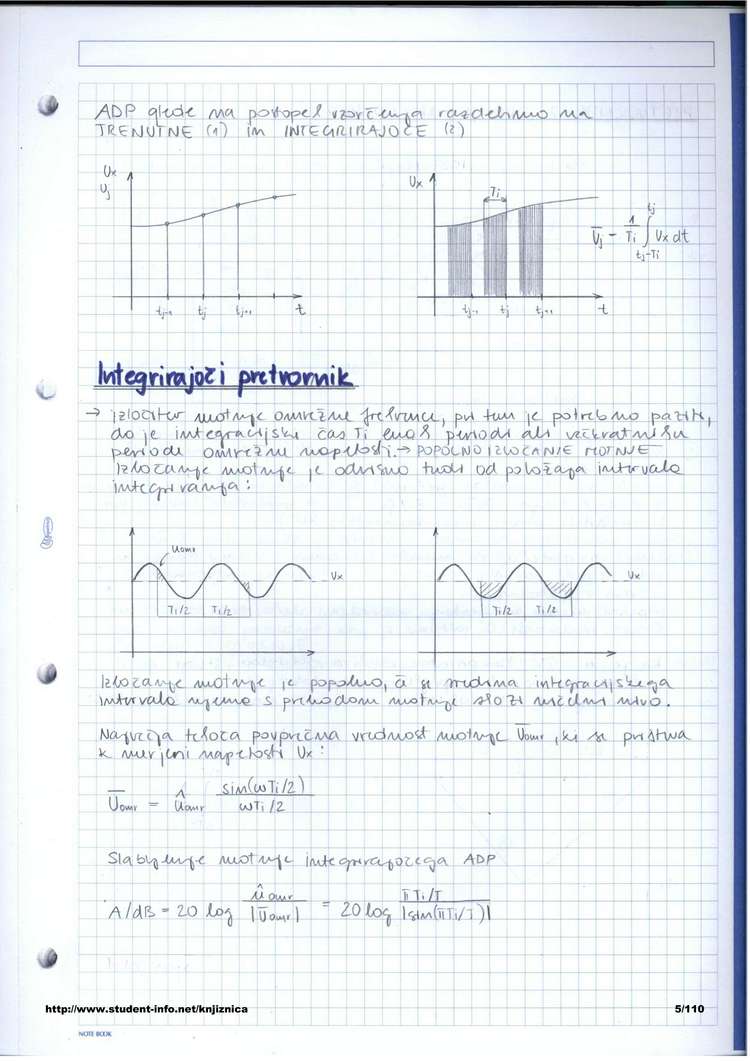 ADP glede na postopek vzorčenja razdelimo na
TRENUTNE (1) in INTEGRIRAJOČE (2)
Ux
Uj
tj-1 tj tj+1 t
Ux
Ti
tj-1 tj tj+1 t
Ūj = 1/Ti ∫ Ux dt
tj
tj-Ti
Integrirajoči pretvornik
→ izločitev motnje omrežne frekvence, pri tem je potrebno paziti,
da je integracijski čas Ti enak periodi ali večkratniku
periode omrežne napetosti. → POPOLNO IZLOČANJE MOTNJE
Izločanje motnje je odvisno tudi od položaja intervala
integriranja:
uomr
Ux
Ti/2 Ti/2
Ux
Ti/2 Ti/2
Izločanje motnje je popolno, če se sredina integracijskega
intervala ujema s prehodom motnje skozi ničelni nivo.
Največja tekoča povprečna vrednost motnje Ūomr, ki se prišteva
k merjeni napetosti Ux:
Ūomr = ûomr sin(ωTi/2) / ωTi/2
Slabljenje motnje integrirajočega ADP
A/dB = 20 log ûomr / |Ūomr| = 20 log πTi/T / |sin(πTi/T)|
http://www.student-info.net/knjiznica 5/110
NOTE BOOK